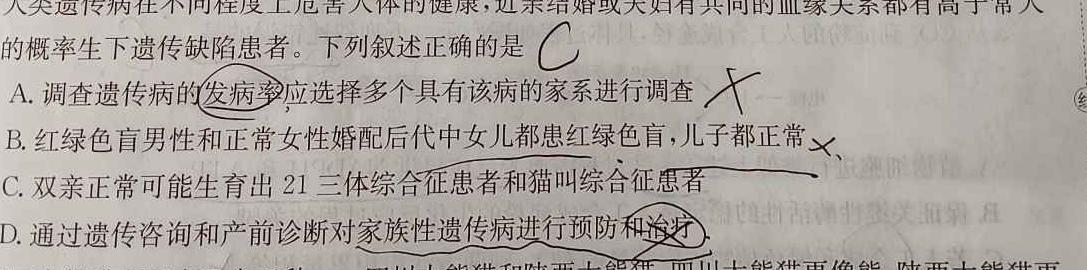 人类遗传病在不同程度上危害人体的健康,近亲结婚或夫妇有共同的血缘关系都有高于常人
的概率生下遗传缺陷患者。下列叙述正确的是 C
A. 调查遗传病的发病率应选择多个具有该病的家系进行调查 ×
B. 红绿色盲男性和正常女性婚配后代中女儿都患红绿色盲,儿子都正常 ×
C. 双亲正常可能生育出 21 三体综合征患者和猫叫综合征患者
D. 通过遗传咨询和产前诊断对家族性遗传病进行预防和治疗